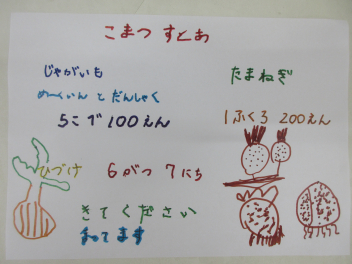 こまつ すとあ
じゃがいも
めーくいん と だんしゃく
5こで100えん
たまねぎ
1ふくろ 200えん
ひづけ 6がつ 7にち
きてください
まってます